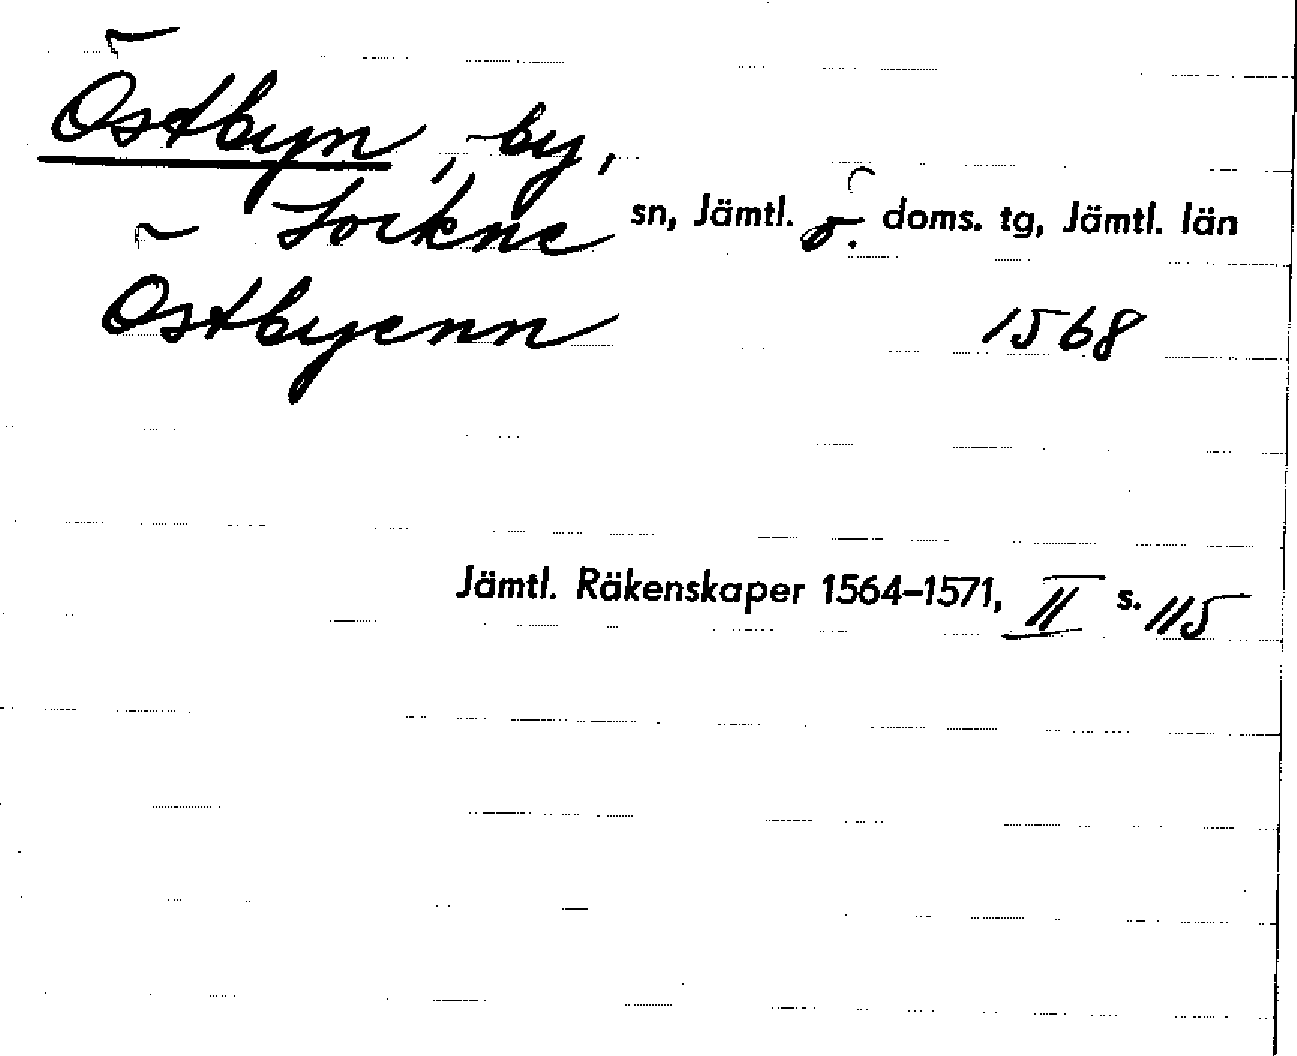 Östbyn, by,
Lockne sn, Jämtl. ö. doms. tg, Jämtl. län
Östbyenn 1568
Jämtl. Räkenskaper 1564–1571, II s. 115